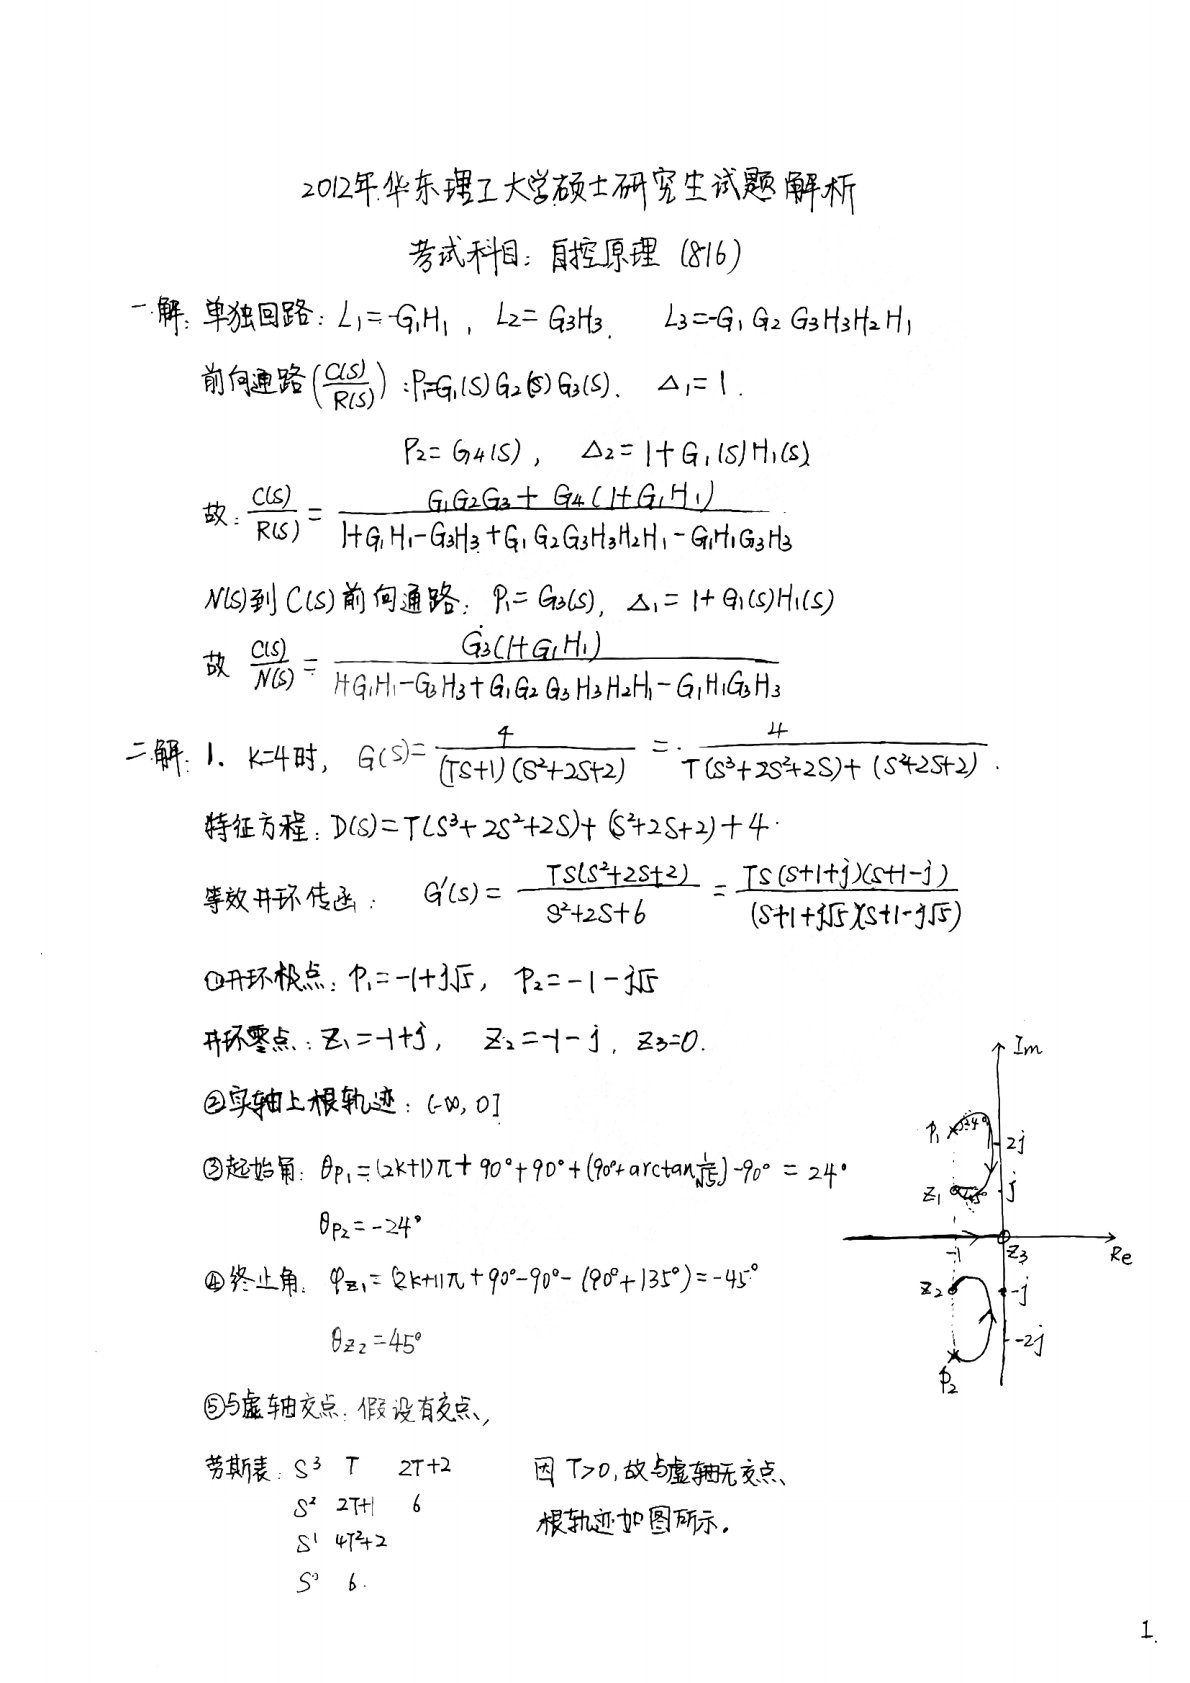 2012年华东理工大学硕士研究生试题解析
考试科目：自控原理（816）
一.解：单独回路：L₁=-G₁H₁， L₂=G₃H₃． L₃=-G₁G₂G₃H₃H₂H₁
前向通路(C(S)/R(S))：P₁=G₁(S)G₂(S)G₃(S)． Δ₁=1．
P₂=G₄(S)， Δ₂=1+G₁(S)H₁(S)
故：C(S)/R(S) = [G₁G₂G₃+G₄(1+G₁H₁)]/[1+G₁H₁-G₃H₃+G₁G₂G₃H₃H₂H₁-G₁H₁G₃H₃]
N(S)到C(S)前向通路：P₁=G₃(S)，Δ₁=1+G₁(S)H₁(S)
故 C(S)/N(S) = [G₃(1+G₁H₁)]/[1+G₁H₁-G₃H₃+G₁G₂G₃H₃H₂H₁-G₁H₁G₃H₃]
二.解：1. K=4时， G(S)= 4/[(TS+1)(S²+2S+2)] = 4/[T(S³+2S²+2S)+(S²+2S+2)]．
特征方程：D(S)=T(S³+2S²+2S)+(S²+2S+2)+4．
等效开环传函： G'(S) = TS(S²+2S+2)/(S²+2S+6) = TS(S+1+j)(S+1-j)/[(S+1+j√5)(S+1-j√5)]
①开环极点：P₁=-1+j√5， P₂=-1-j√5
开环零点：Z₁=-1+j， Z₂=-1-j， Z₃=0．
②实轴上根轨迹：(-∞,0]
③起始角：θp₁=(2k+1)π+90°+90°+(90°+arctan 1/√5)-90° = 24°
θp₂=-24°
④终止角：φz₁=(2k+1)π+90°-90°-(90°+135°)=-45°
θz₂=45°
⑤与虚轴交点：假设有交点，
劳斯表： S³ T 2T+2
S² 2T+1 6
S¹ 4T²+2
S⁰ 6．
因T>0，故与虚轴无交点、
根轨迹如图所示．
Im
P₁ 24° 2j
Z₁ 45° j
-1 Z₃ Re
Z₂ -j
-2j
P₂
1.